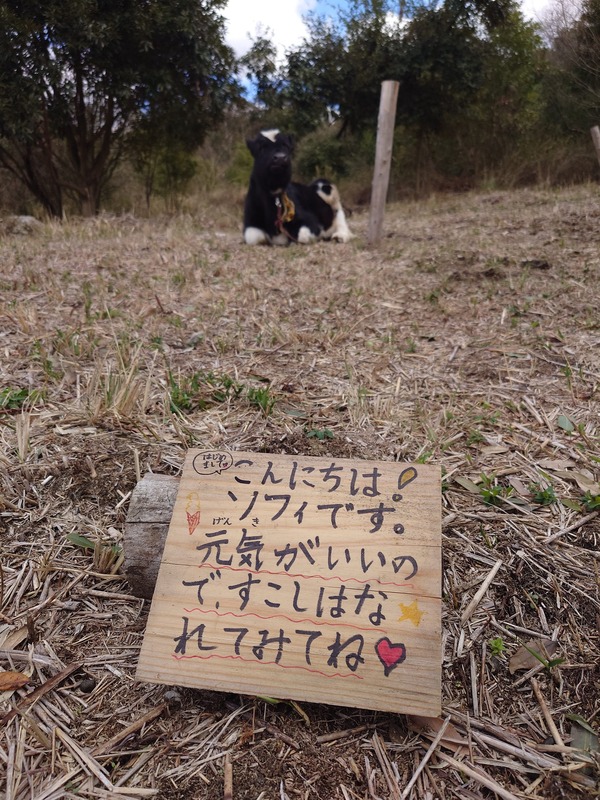 はじめ
まして♡
こんにちは!
ソフィです。
げんき
元気がいいの
で、すこしはな
れてみてね